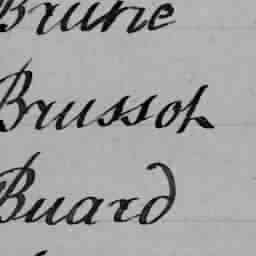 Brune
Brussot
Buard